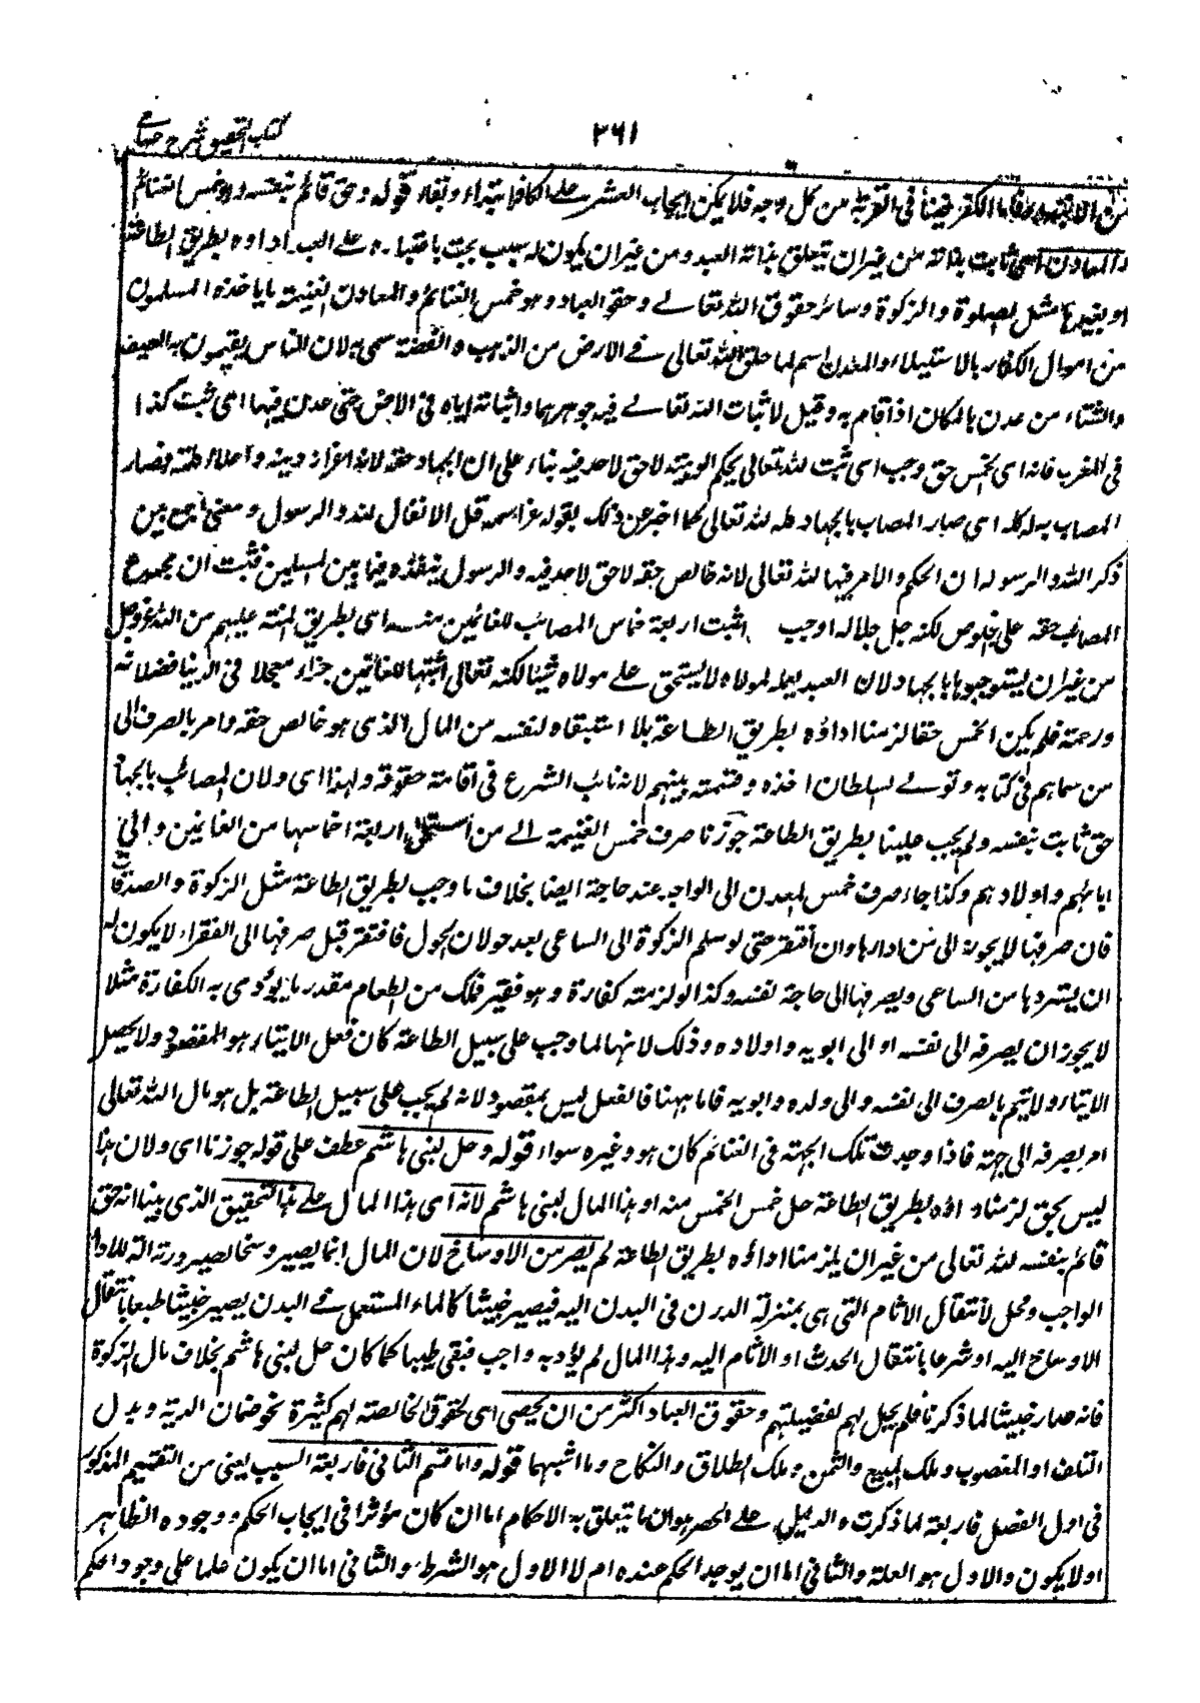 كتاب التحقيق شرح حسامي
٢٦١
من كل وجه فلا يمكن ايجاب العشر على الكافر ابتداء وبقاء قوله وحق قائم بنفسه وهو خمس الغنائم
والمعادن اى ثابت بذاته من غير ان يتعلق بذمة العبد ومن غير ان يكون له سبب يجب باعتباره على العبد اداؤه بطريق الطاعة
او بغيرها مثل الصلوة والزكوة وسائر حقوق الله تعالى وحقوق العباد وهو خمس الغنائم والمعادن الغنيمة ما ياخذه المسلمون
من اموال الكفار بالاستيلاء والمعدن اسم لما خلق الله تعالى فى الارض من الذهب والفضة سمى به لان الناس يقيمون به الصيف
والشتاء من عدن بالمكان اذا اقام به وقيل لاثبات الله تعالى فيه جوهرهما واثباته اياه فى الارض حتى عدن فيها اى ثبت كذا
فى المغرب فانه اى الخمس حق وجب اى ثبت لله تعالى بحكم الوهيته لا حق لاحد فيه بناء على ان الجهاد حقه لانه اعزاز دينه واعلاء كلمته فصار
المصاب به له كله اى صار المصاب بالجهاد كله لله تعالى كما اخبر عن ذلك بقوله عز اسمه قل الانفال لله والرسول ومعنى الجمع بين
ذكر الله والرسول ان الحكم والامر فيها لله تعالى لانه خالص حقه لا حق لاحد فيه والرسول ينفذه فيما بين المسلمين فثبت ان مجموع
المصاب حقه على الخلوص لكنه جل جلاله اوجب اثبت اربعة اخماس المصاب للغانمين منه اى بطريق المنة عليهم من الله عز وجل
من غير ان يستوجبوها بالجهاد لان العبد بعمله لمولاه لا يستحق على مولاه شيئا لكنه تعالى اثبتها للغانمين جزاء معجلا فى الدنيا فضلا منه
ورحمة فلم يكن الخمس حقا لزمنا اداؤه بطريق الطاعة بل استبقاه لنفسه من المال الذى هو خالص حقه وامر بالصرف الى
من سماهم فى كتابه وتولى السلطان اخذه وقسمته بينهم لانه نائب الشرع فى اقامة حقوقه ولهذا اى ولان المصاب بالجهاد
حق ثابت بنفسه ولم يجب علينا بطريق الطاعة جوزنا صرف خمس الغنيمة الى من استحق اربعة اخماسها من الغانمين والى
ابائهم واولادهم وكذا جاء صرف خمس المعدن الى الواجد عند حاجة ايضا بخلاف ما وجب بطريق الطاعة مثل الزكوة والصدقات
فان صرفها لا يجوز الى من اداها وان افتقر حتى لو سلم الزكوة الى الساعى بعد حولان الحول فافتقر قبل صرفها الى الفقراء لا يكون له
ان يستردها من الساعى ويصرفها الى حاجة نفسه وكذا لو لزمته كفارة وهو فقير فملك من الطعام مقدر ما يؤدى به الكفارة مثلا
لا يجوز ان يصرفه الى نفسه او الى ابويه واولاده وذلك لانها لما وجب على سبيل الطاعة كان فعل الايتاء هو المقصود ولا يحصل
الايتاء ولا يتم بالصرف الى نفسه والى ولده وابويه فاما ههنا فالفعل ليس بمقصود لانه لم يجب على سبيل الطاعة بل هو مال الله تعالى
امر بصرفه الى جهة فاذا وجدت تلك الجهة فى الغانم كان هو وغيره سواء قوله وحل لبنى هاشم عطف على قوله جوزنا اى ولان هذا
ليس بحق لزمنا اداؤه بطريق الطاعة حل خمس الخمس منه او هذا المال لبنى هاشم لانه اى هذا المال على هذا التحقيق الذى بينا انه حق
قائم بنفسه لله تعالى من غير ان يلزمنا اداؤه بطريق الطاعة لم يصر من الاوساخ لان المال انما يصير وسخا لصيرورته الة للاداء
الواجب ومحل لانتقال الاثام التى هى بمنزلة الدرن فى البدن اليه فيصير خبيثا كالماء المستعمل فى البدن يصير خبيثا طبعا بانتقال
الاوساخ اليه او شرعا بانتقال الحدث او الاثام اليه وهذا المال لم يؤد به واجب فبقى طيبا كما كان حل لبنى هاشم بخلاف مال الزكوة
فانه صار خبيثا لما ذكرنا فلم يحل لهم لفضيلتهم وحقوق العباد اكثر من ان يحصى اى الحقوق الخالصة لهم كثيرة نحو ضمان الدية وبدل
التلف او المغصوب وملك المبيع والثمن وملك الطلاق والنكاح وما اشبهها قوله واما قسم الثانى فاربعة السبب يعنى من التقسيم المذكور
فى اول الفصل فاربعة لما ذكرت والدليل على الحصر هو ان ما يتعلق به الاحكام اما ان كان مؤثرا فى ايجاب الحكم ووجوده الظاهر
او لا يكون والاول هو العلة والثانى اما ان يوجد الحكم عنده ام لا الاول هو الشرط والثانى اما ان يكون علما على وجود الحكم